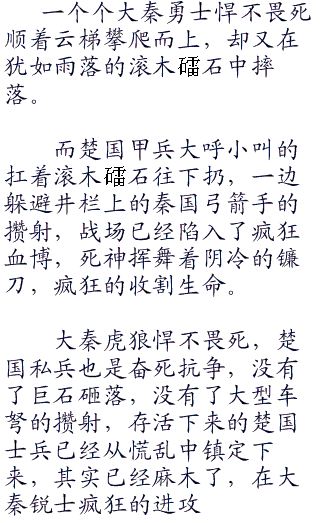 一个个大秦勇士悍不畏死
顺着云梯攀爬而上，却又在
犹如雨落的滚木礌石中摔
落。
而楚国甲兵大呼小叫的
扛着滚木礌石往下扔，一边
躲避井栏上的秦国弓箭手的
攒射，战场已经陷入了疯狂
血博，死神挥舞着阴冷的镰
刀，疯狂的收割生命。
大秦虎狼悍不畏死，楚
国私兵也是奋死抗争，没有
了巨石砸落，没有了大型车
弩的攒射，存活下来的楚国
士兵已经从慌乱中镇定下
来，其实已经麻木了，在大
秦锐士疯狂的进攻